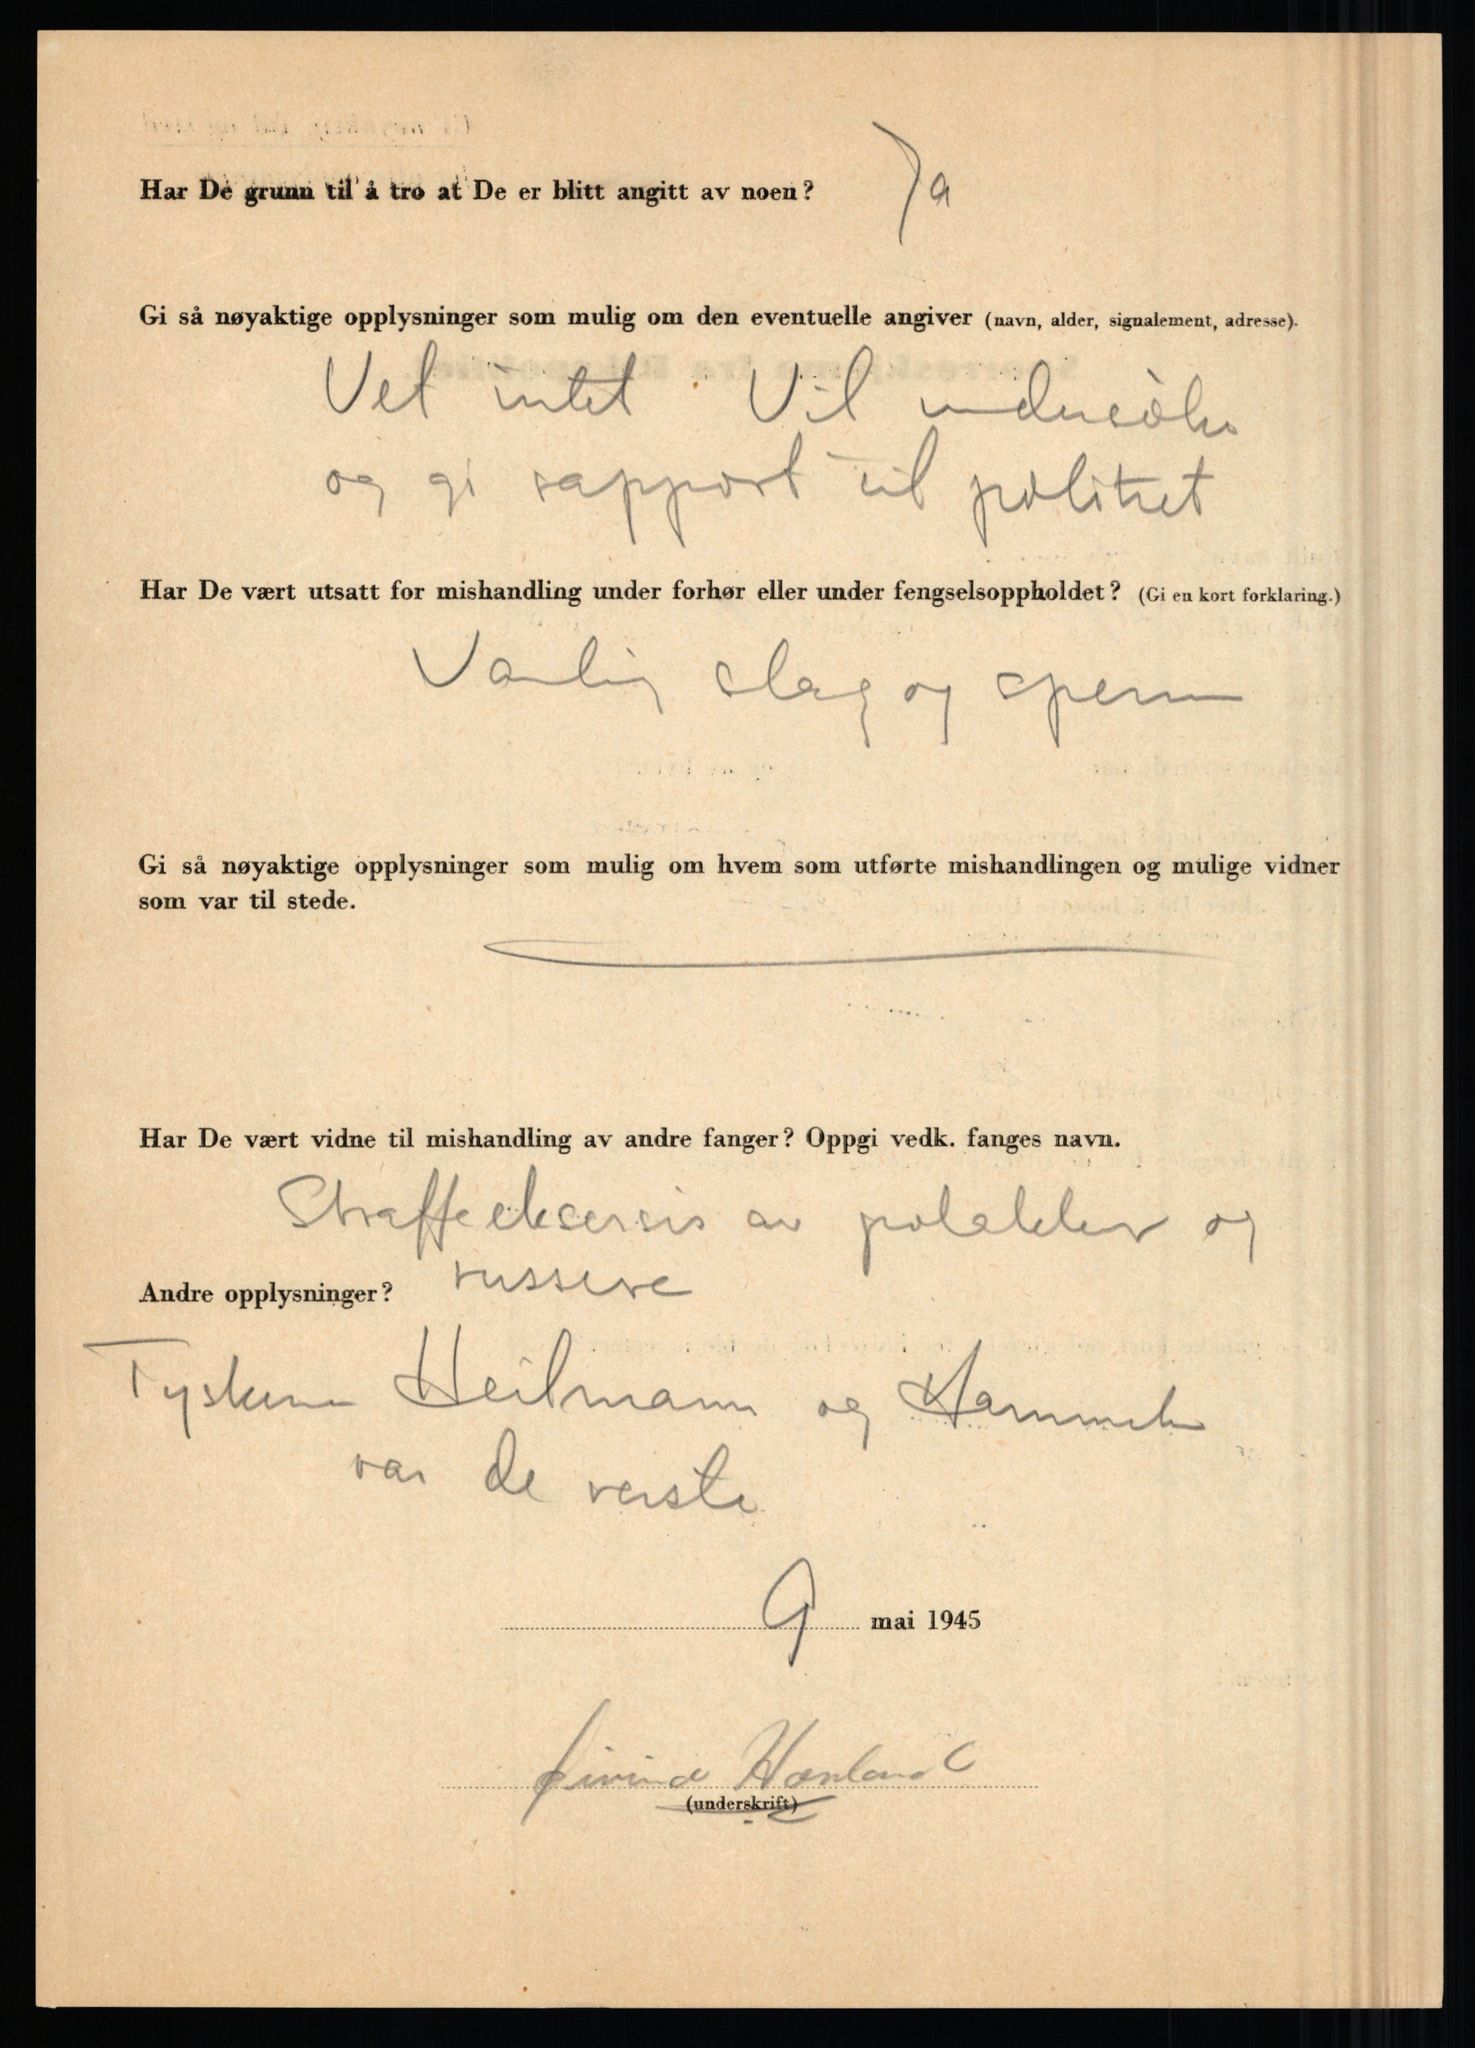 Har De grunn til å tro at De er blitt angitt av noen? Ja
Gi så nøyaktige opplysninger som mulig om den eventuelle angiver (navn, alder, signalement, adresse).
Vet intet. Vil undersøke
og gi rapport til politiet
Har De vært utsatt for mishandling under forhør eller under fengselsoppholdet? (Gi en kort forklaring.)
Vanlig slag og spenn
Gi så nøyaktige opplysninger som mulig om hvem som utførte mishandlingen og mulige vidner
som var til stede.
Har De vært vidne til mishandling av andre fanger? Oppgi vedk. fanges navn.
Straffeeksersis av polakker og
russere
Andre opplysninger?
Tyskerne Heilmann og
var de verste
9 mai 1945
Øivind
(underskrift)